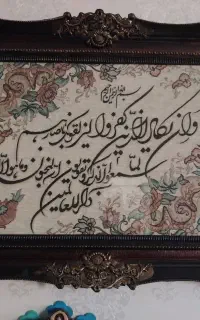 بسم الله الرحمن الرحیم
وان یکاد الذین کفروا لیزلقونک بابصارهم
لما سمعوا الذکر و یقولون انه لمجنون و ما هو الا
ذکر للعالمین